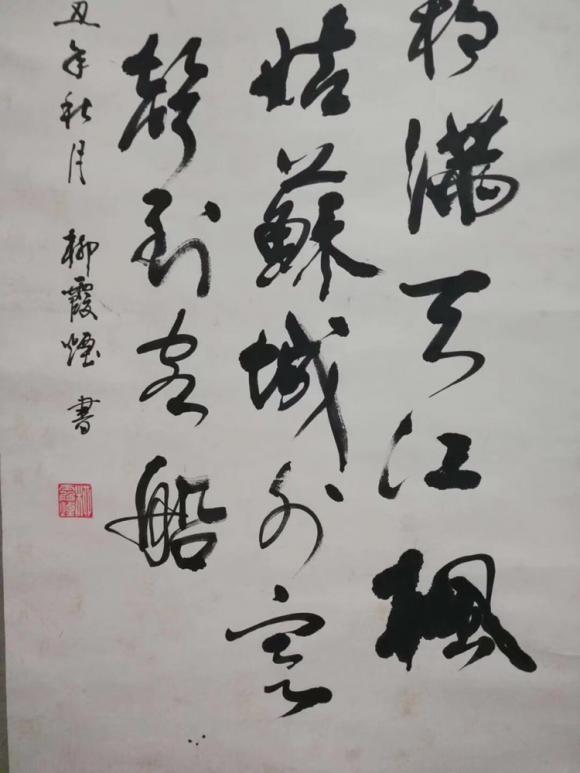 霜滿天江楓
姑蘇城外寒
聲到客船
丑年秋月 柳霞煙 書